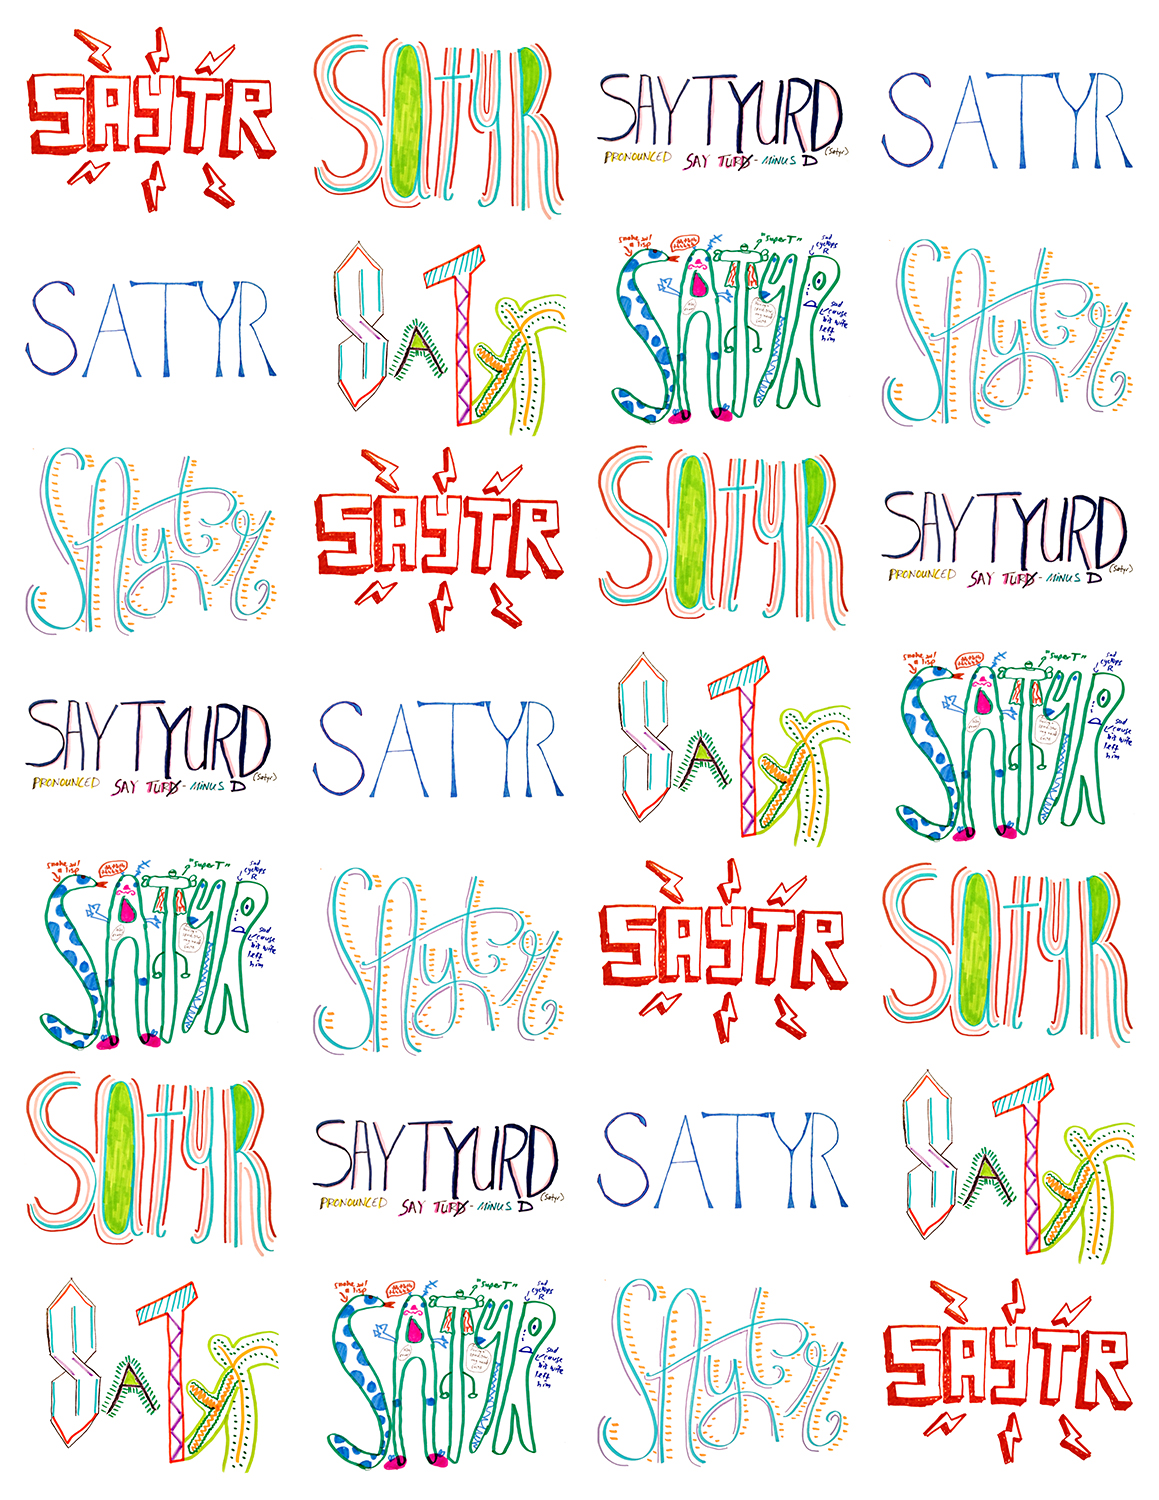 SAYTR
SatyR
SAYTYURD
(Satyr)
PRONOUNCED SAY TURD - MINUS D
SATYR
SATYR
SATYr
snake w/
a lisp
"Super T"
sad
cyclops
R
SATYR
sad
cause
his wife
left
him
SAytr
SAytr
SAYTR
SatyR
SAYTYURD
(Satyr)
PRONOUNCED SAY TURD - MINUS D
SAYTYURD
(Satyr)
PRONOUNCED SAY TURD - MINUS D
SATYR
SATYr
snake w/
a lisp
"Super T"
sad
cyclops
R
SATYR
sad
cause
his wife
left
him
snake w/
a lisp
"Super T"
sad
cyclops
R
SATYR
sad
cause
his wife
left
him
SAytr
SAYTR
SatyR
SatyR
SAYTYURD
(Satyr)
PRONOUNCED SAY TURD - MINUS D
SATYR
SATYr
SATYr
snake w/
a lisp
"Super T"
sad
cyclops
R
SATYR
sad
cause
his wife
left
him
SAytr
SAYTR